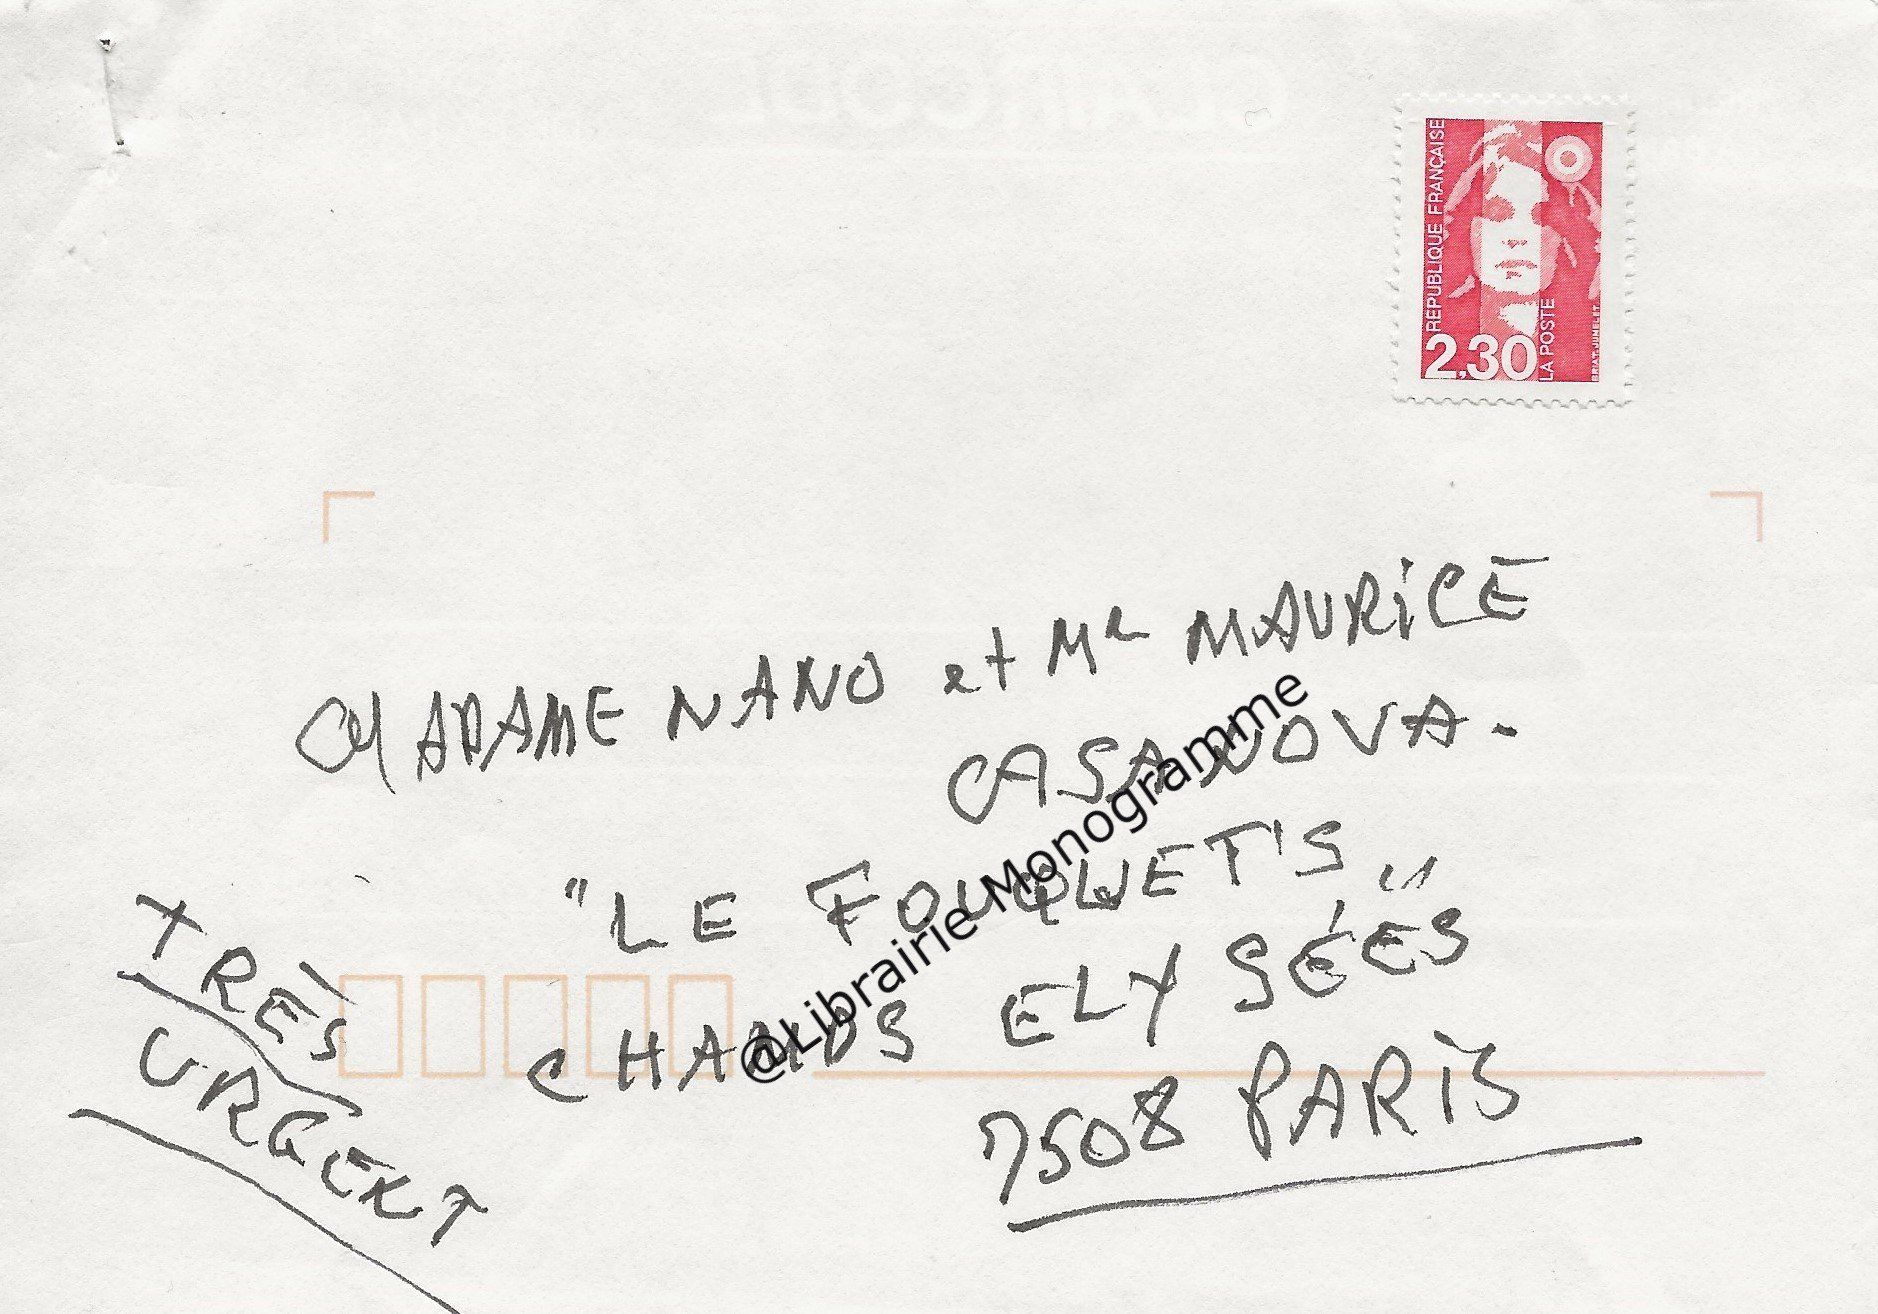 RÉPUBLIQUE FRANÇAISE
2,30
LA POSTE
BRIAT.JUMELET
MADAME NANO et Mr MAURICE
CASANOVA.
"LE FOUQUET'S"
CHAMPS ELYSÉES
7508 PARIS
TRÈS
URGENT
@Librairie Monogramme